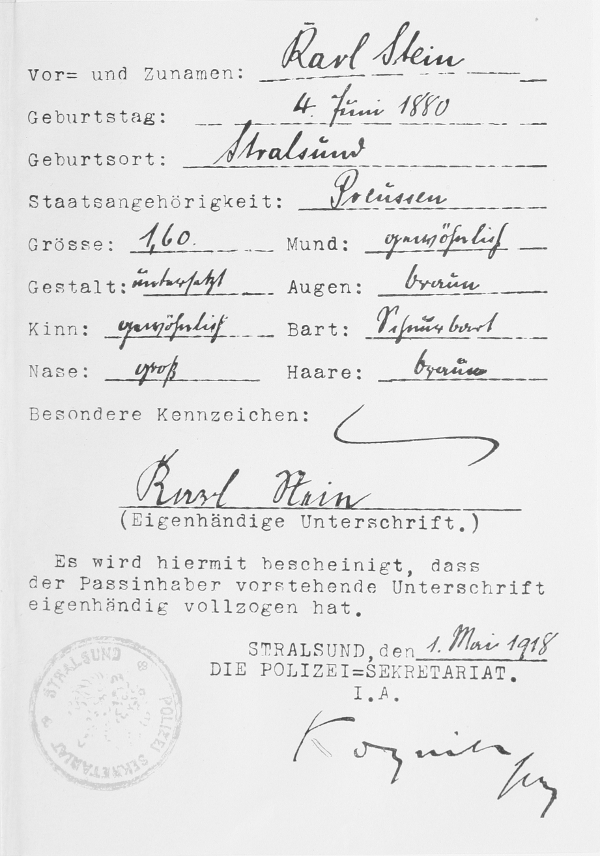 Vor= und Zunamen: Karl Stein
Geburtstag: 4. Juni 1880
Geburtsort: Stralsund
Staatsangehörigkeit: Preussen
Grösse: 1,60. Mund: gewöhnlich
Gestalt: untersetzt Augen: braun
Kinn: gewöhnlich Bart: Schnurbart
Nase: groß Haare: braun
Besondere Kennzeichen:
Karl Stein
(Eigenhändige Unterschrift.)
Es wird hiermit bescheinigt, dass
der Passinhaber vorstehende Unterschrift
eigenhändig vollzogen hat.
STRALSUND, den 1. Mai 1918
DIE POLIZEI=SEKRETARIAT.
I.A.
STRALSUND
POLIZEI SEKRETARIAT